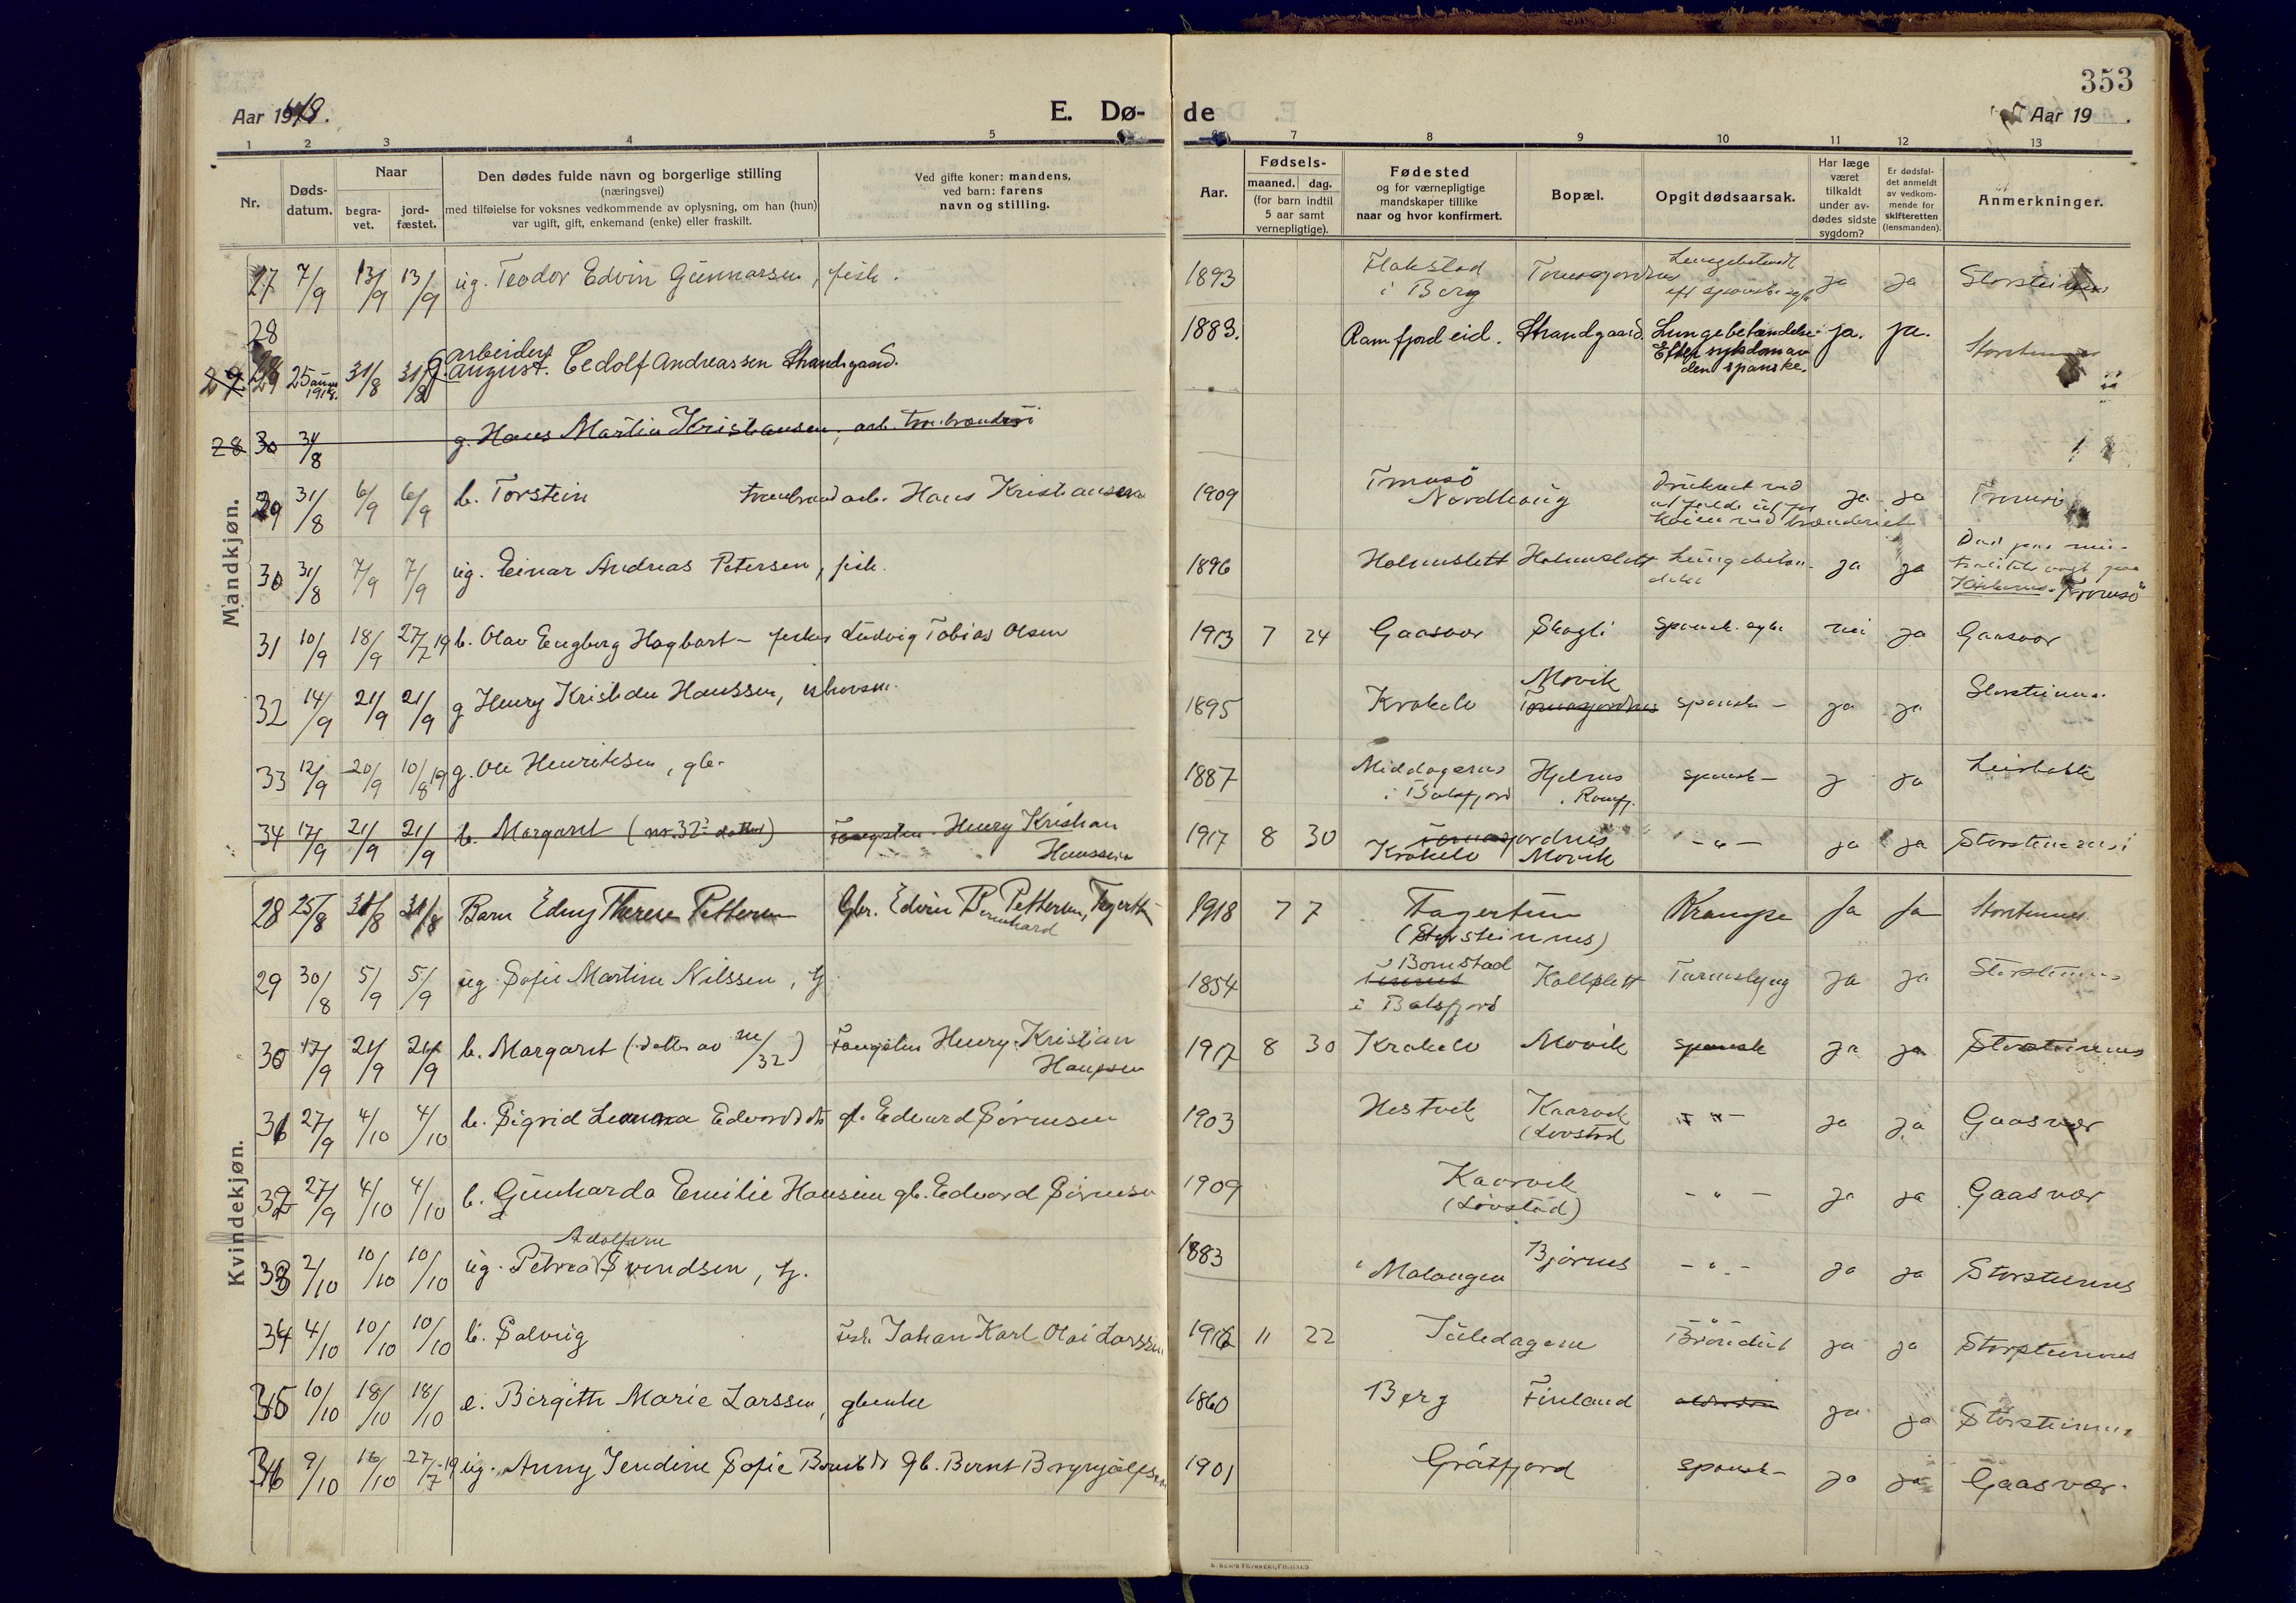 353
Aar 1918. E. Dø- de Aar 19 .
1 2 3 4 5 7 8 9 10 11 12 13
Nr.
Døds-
datum.
Naar
begra-
vet.
jord-
fæstet.
Den dødes fulde navn og borgerlige stilling
(næringsvei)
med tilføielse for voksnes vedkommende av oplysning, om han (hun)
var ugift, gift, enkemand (enke) eller fraskilt.
Ved gifte koner: mandens,
ved barn: farens
navn og stilling.
Aar.
Fødsels-
maaned. dag.
(for barn indtil
5 aar samt
vernepligtige).
Fødested
og for værnepligtige
mandskaper tillike
naar og hvor konfirmert.
Bopæl.
Opgit dødsaarsak.
Har læge
været
tilkaldt
under av-
dødes sidste
sygdom?
Er dødsfal-
det anmeldt
av vedkom-
mende for
skifteretten
(lensmanden).
Anmerkninger.
Mandkjøn.
27 7/9 13/9 13/9 ug. Teodor Edvin Gunnarsen, fisk. 1893 Flakstad i Berg ja ja Storsteinnes
28
29 25 1918. 31/8 31/8 arbeider august. Cedolf Andreassen Strandgaard. 1883. Ramfjordeid. Strandgaard. Lungebetændelse Efter sykdom av den spanske. ja. ja. Storsteinnes
28 30 31/8 g. Hans Martin Kristiansen, arb. tranbrænderi
29 31/8 6/9 6/9 b. Torstein tranbrænd arb. Hans Kristiansen 1909 Tromsö Nordhaug Druknet ved at falde ut fra Kaien ved brænderiet ja ja Tromsö
30 31/8 7/9 7/9 ug. Einar Andreas Petersen, fisk. 1896 Holmslett Holmslett Lungebetændelse ja ja Tromsö
31 10/9 18/9 27/7 19 b. Olav Engberg Hagbart - fisker Ludvig Tobias Olsen 1913 7 24 Gaasvær Skogli spansk syke nei ja Gaasvær
32 14/9 21/9 21/9 g Henry Kristian Hanssen, ishavsm. 1895 Krokelv Movik spansk - ja ja Storsteinnes
33 12/9 20/9 10/8 19 g. Ole Henriksen, gb. 1887 Middagsnes i Balsfjord Hjelnes i Ramfj. spansk - j ja
34 17/9 21/9 21/9 b. Margaret (nr. 32's datter) Fangstm. Henry Kristian Hanssen 1917 8 30 Krokelv Movik - " - ja ja Storsteinnes
Kvindekjøn.
28 25/8 31/8 31/8 Barn Edny Therese Pettersen Gbr. Edvin Bernhard Pettersen, Fagertt 1918 7 7 Fagertun (Storsteinnes) Krampe Ja Ja Storsteinnes
29 30/8 5/9 5/9 ug. Sofie Martine Nilssen, tj. 1854 Bomstad i Balsfjord Kobbslett Tarmslyng ja ja Storsteinnes
30 17/9 21/9 21/9 b. Margaret (datter av nr/32) Fangstm Henry Kristian Hanssen 1917 8 30 Krokelv Movik spansk ja ja Storsteinnes
31 27/9 4/10 4/10 b. Sigrid Leonora Edvardsdtr gb. Edvard Sörensen 1903 Hestvik Kaarvik (Lovstad - " - ja ja Gaasvær
32 27/9 4/10 4/10 b. Gunharda Emilie Hansine gb. Edvard Sörensen 1909 Kaarvik (Lövstad) - " - ja ja Gaasvær
33 2/10 10/10 10/10 ug. Petrea Adolfine Svendsen, tj. 1883 Malangen Björnes - " - ja ja Storsteinnes
34 4/10 10/10 10/10 b. Solveig fisk. Johan Karl Olai Larssen 1916 11 22 Tüledagene ja ja Storsteinnes
35 10/10 18/10 18/10 e. Birgitte Marie Larssen, gbenke 1860 Berg Finland ja ja Storsteinnes
36 9/10 16/10 27/7 -19 ug. Anny Jendine Sofie Berntsdtr Gb. Bernt Brynjulfsen 1901 Gråtfjord spansk - ja ja Gaasvær.